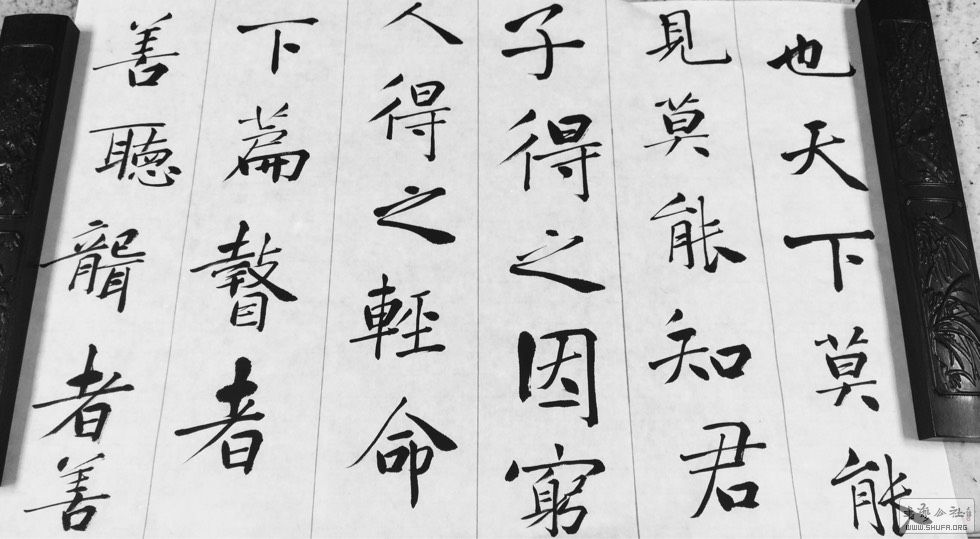 也天下莫能
見莫能知君
子得之因窮
人得之輕命
下篇瞽者
善聽聾者善
WWW.SHUFA.ORG